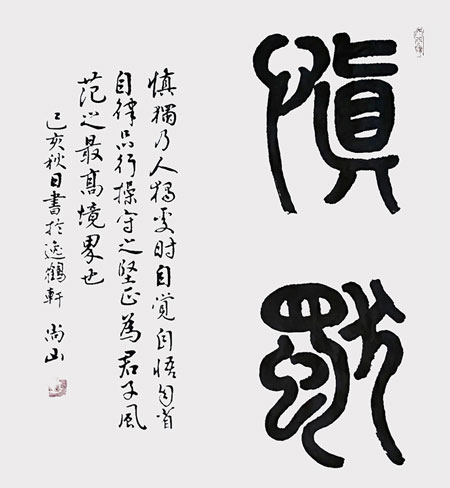 慎獨
慎獨乃人獨處时自覺自悟自省
自律品行操守之堅正為君子風
范之最高境界也
己亥秋日書於逸鶴軒 尚山